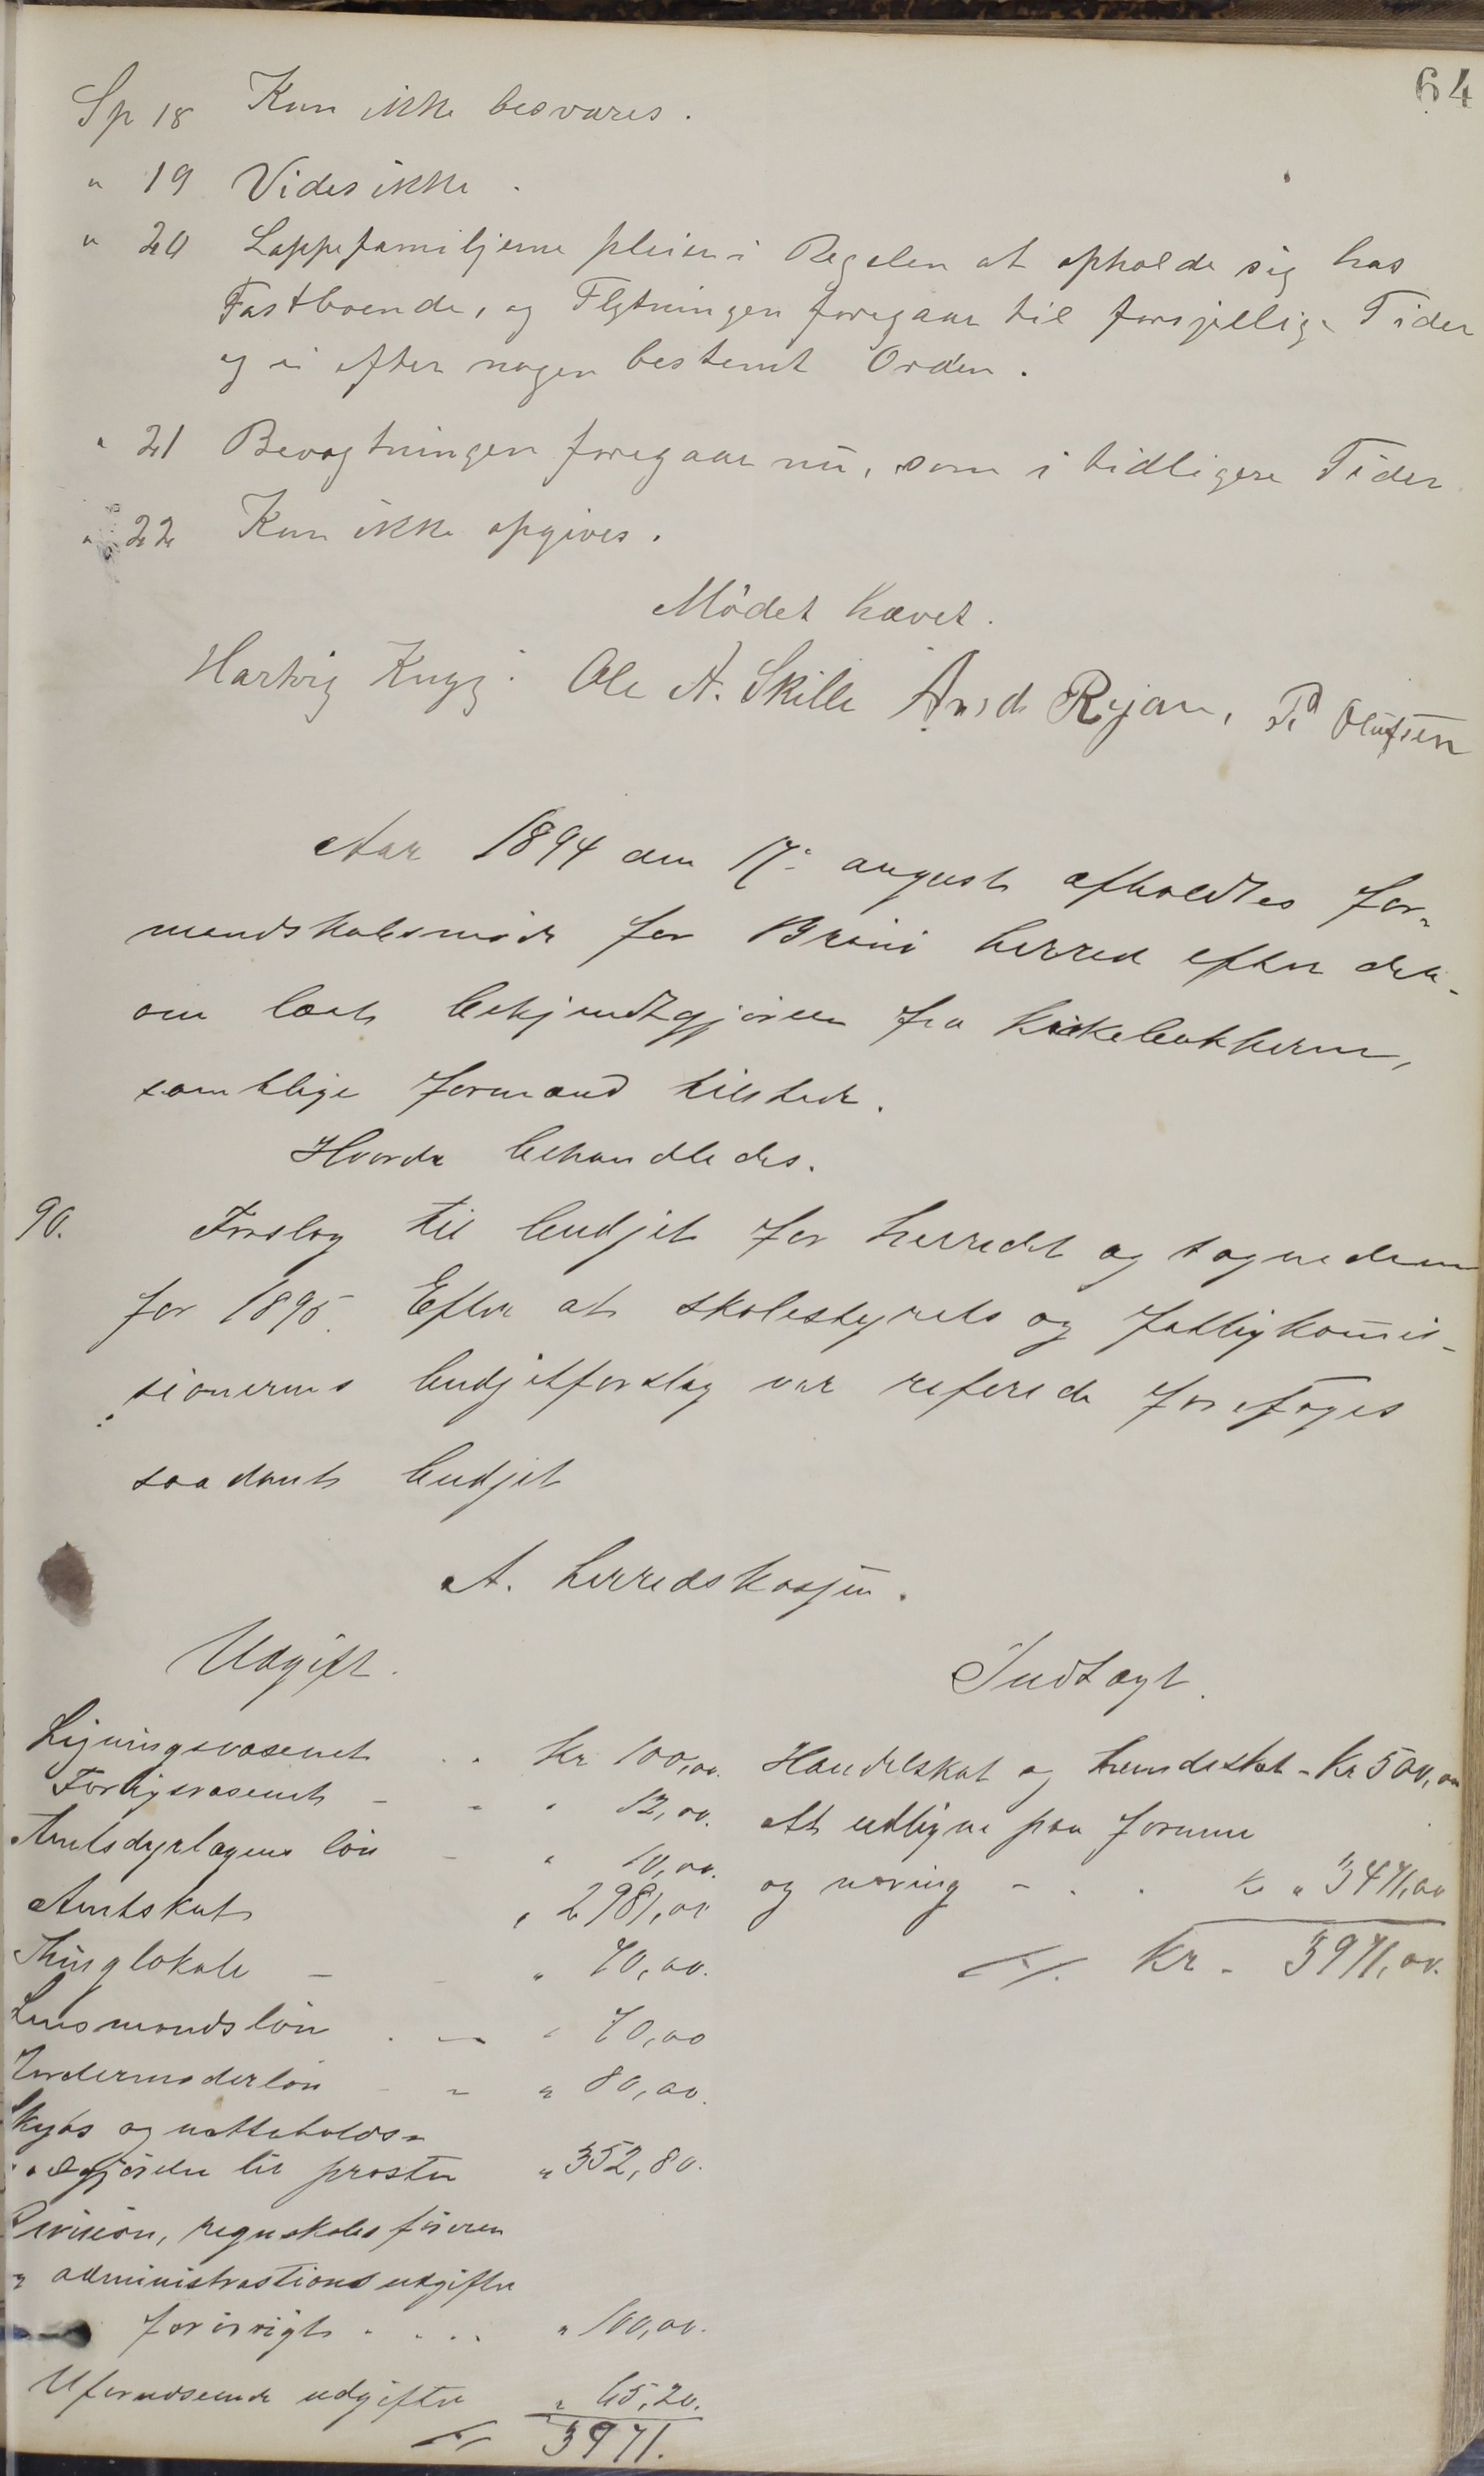 64
Sp 18 Kan ikke besvares.
" 19 Vides ikke.
" 20 Lappefamiljerne pleier i Regelen at opholde sig hos
Fastboende, og Flytningen foregaar til forsjellige Tider
og ei efter nogen bestemt Orden.
" 21 Bevogtningen foregaar nu, som i tidligere Tider
" 22 Kan ikke opgives.
Mödet hævet.
Hartvig Krygg. Ole A. Skille Arnd Ryan, P Olufsen
Aar 1894 den 17. august afholdtes for-
mandskabsmöde for Brönö herred efter der-
om læst bekjendtgjörelse fra kirkebakkerne,
samtlige formænd tilstede.
Hvorda behandledes.
90. Forslag til budjet for herredet og sognedem
for 1895. Efter at skolestyrets og fattigkomis-
sionernes budjetforslag var referede forefoges
saadant budjet
A. herredskassen.
Udgift. Indtægt.
Ligningsvæsenet . . kr 100,00. Handelskat og hundeskat - kr 500,00
Forligsvæsenet - - " 12,00. At udligne paa formue
Amtsdyrlægens lön - " 10,00. og næring - . . kr " 3471,00
Amtskat " 2981,00 kr - 3971,00.
Thinglokale - - " 70,00.
Lensmandslön . - " 70,00
Jordemoderlön - - " 80,00.
Skyds og natteholds-
godtgjörelse til prosten " 352,80.
Revision, regnskabsföreren
" administrastions udgifter
forövrigt . . . . " 100,00.
Uforudseende udgifter " 65,20.
3971.